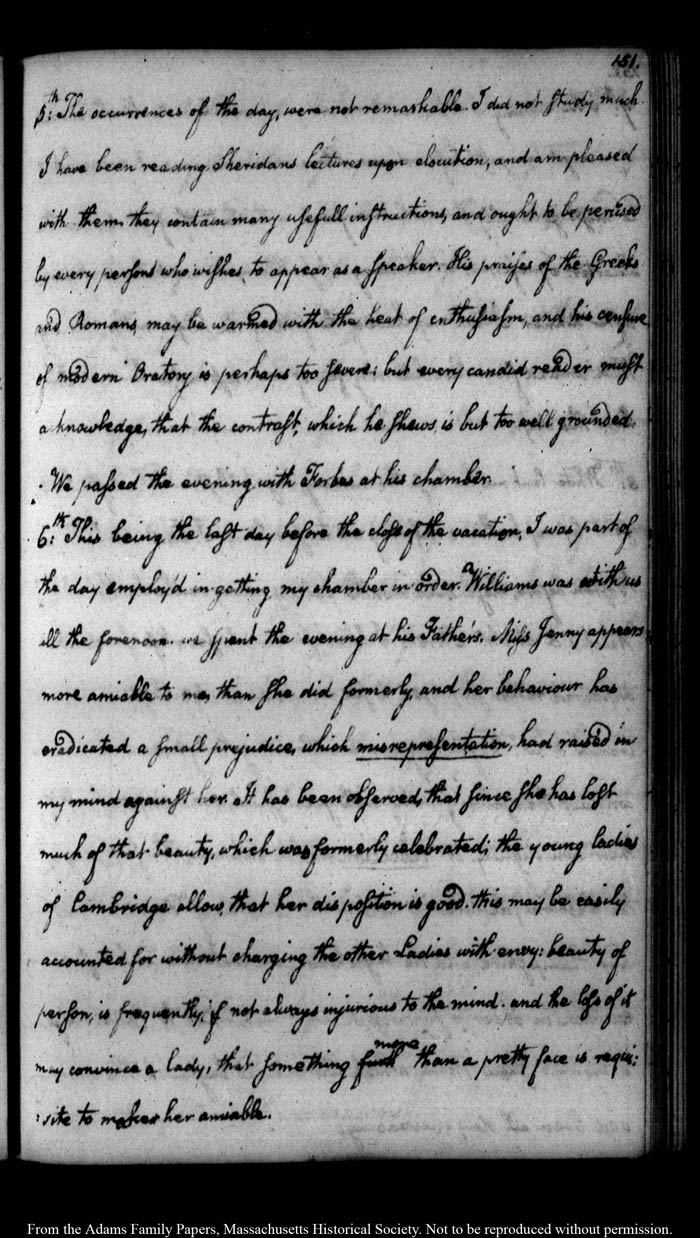 151.
5:th The occurrences of the day, were not remarkable. I did not study much.
I have been reading Sheridans lectures upon elocution, and am pleased
with them, they contain many usefull instructions, and ought to be perused
by every person who wishes, to appear as a speaker. His praises of the Greeks
and Romans, may be warmed with the heat of enthusiasm, and his censure
of modern Oratory is perhaps too severe: but every candid reader must
acknowledge, that the contrast, which he shews, is but too well grounded.
We passed the evening with Forbes at his chamber.
6:th This being the last day before the close of the vacation, I was part of
the day employ'd in getting my chamber in order. Williams was with us
all the forenoon. we spent the evening at his Father's. Miss Jenny appears
more amiable to me, than she did formerly, and her behaviour has
eradicated a small prejudice, which misrepresentation, had raised in
my mind against her. It has been observed, that since she has lost
much of that beauty, which was formerly celebrated; the young ladies
of Cambridge allow, that her disposition is good. this may be easily
accounted for without charging the other Ladies with envy: beauty of
person, is frequently, if not always injurious to the mind. and the loss of it
may convince a lady, that something more than a pretty face is requi:
:site to make her amiable.
From the Adams Family Papers, Massachusetts Historical Society. Not to be reproduced without permission.